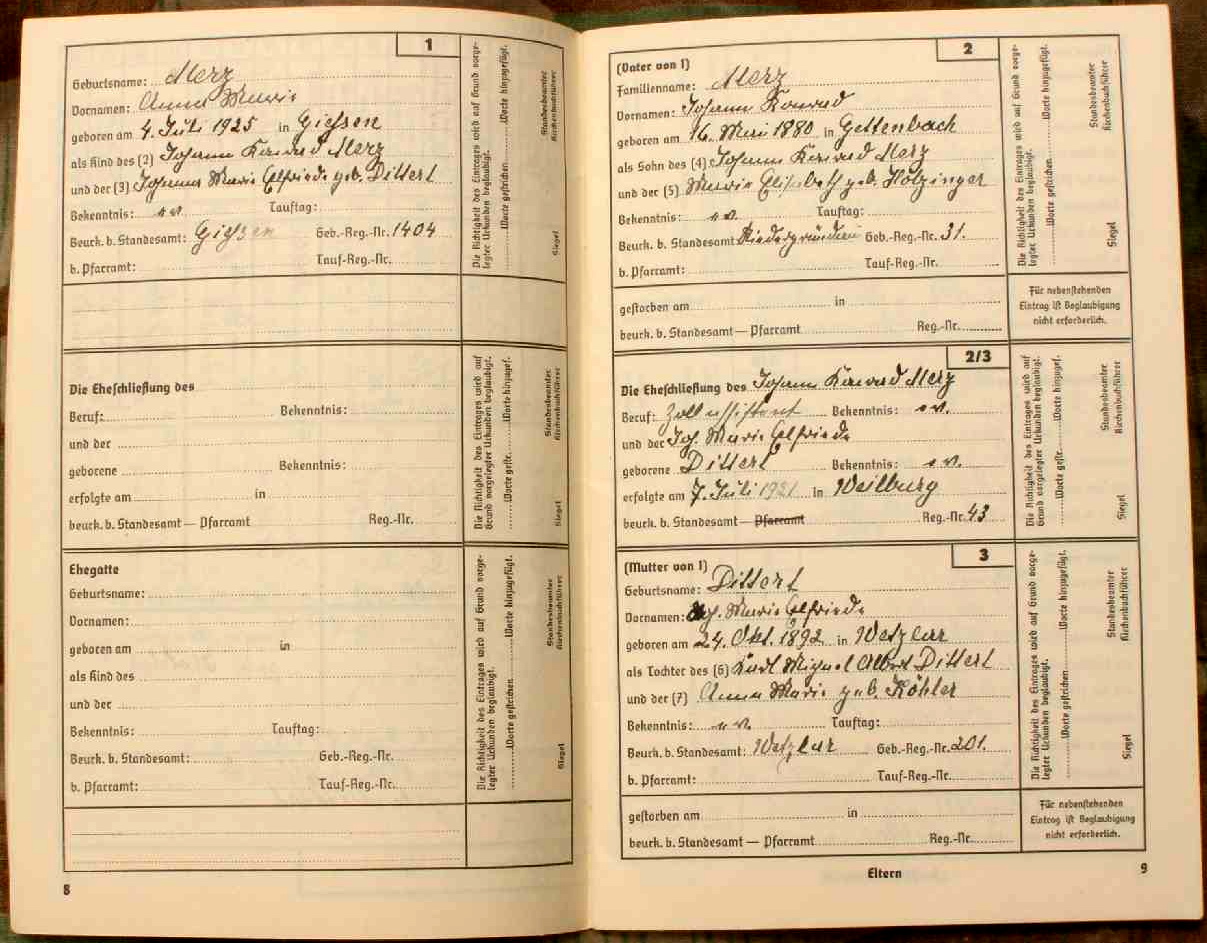 1
Geburtsname: Merz
Vornamen: Anna Marie
geboren am 4. Juli 1925 in Giessen
als Kind des (2) Johann Konrad Merz
und der (3) Johanna Marie Elfriede geb. Dittert
Bekenntnis: ev. Tauftag:
Beurk. b. Standesamt: Giessen Geb.-Reg.-Nr. 1404
b. Pfarramt: Tauf-Reg.-Nr.
Die Richtigkeit des Eintrages wird auf Grund vorge-
legter Urkunden beglaubigt.
Worte gestrichen Worte hinzugefügt.
Standesbeamter
Kirchenbuchführer
Siegel
Die Eheschließung des
Beruf: Bekenntnis:
und der
geborene Bekenntnis:
erfolgte am in
beurk. b. Standesamt — Pfarramt Reg.-Nr.
Die Richtigkeit des Eintrages wird auf
Grund vorgelegter Urkunden beglaubigt.
Worte gestr. Worte hinzugef.
Standesbeamter
Kirchenbuchführer
Siegel
Ehegatte
Geburtsname:
Vornamen:
geboren am in
als Kind des
und der
Bekenntnis: Tauftag:
Beurk. b. Standesamt: Geb.-Reg.-Nr.
b. Pfarramt: Tauf-Reg.-Nr.
Die Richtigkeit des Eintrages wird auf Grund vorge-
legter Urkunden beglaubigt.
Worte gestrichen Worte hinzugefügt.
Standesbeamter
Kirchenbuchführer
Siegel
8
2
(Vater von 1)
Familienname: Merz
Vornamen: Johann Konrad
geboren am 16. Mai 1880 in Gettenbach
als Sohn des (4) Johann Konrad Merz
und der (5) Marie Elisabeth geb. Holzinger
Bekenntnis: ev. Tauftag:
Beurk. b. Standesamt Niedergründau Geb.-Reg.-Nr. 31.
b. Pfarramt: Tauf-Reg.-Nr.
Die Richtigkeit des Eintrages wird auf Grund vorge-
legter Urkunden beglaubigt.
Worte gestrichen Worte hinzugefügt.
Standesbeamter
Kirchenbuchführer
Siegel
gestorben am in
beurk. b. Standesamt — Pfarramt Reg.-Nr.
Für nebenstehenden
Eintrag ist Beglaubigung
nicht erforderlich.
2/3
Die Eheschließung des Johann Konrad Merz
Beruf: Zollassistent Bekenntnis: ev.
und der Joh. Marie Elfriede
geborene Dittert Bekenntnis: ev.
erfolgte am 7. Juli 1921 in Weilburg
beurk. b. Standesamt — Pfarramt Reg.-Nr. 43
Die Richtigkeit des Eintrages wird auf
Grund vorgelegter Urkunden beglaubigt.
Worte gestr. Worte hinzugef.
Standesbeamter
Kirchenbuchführer
Siegel
3
(Mutter von 1)
Geburtsname: Dittert
Vornamen: Joh. Marie Elfriede
geboren am 24. Okt. 1892 in Wetzlar
als Tochter des (6) Karl Miguel Albert Dittert
und der (7) Anna Marie geb. Köhler
Bekenntnis: ev. Tauftag:
Beurk. b. Standesamt: Wetzlar Geb.-Reg.-Nr. 201.
b. Pfarramt: Tauf-Reg.-Nr.
Die Richtigkeit des Eintrages wird auf Grund vorge-
legter Urkunden beglaubigt.
Worte gestrichen Worte hinzugefügt.
Standesbeamter
Kirchenbuchführer
Siegel
gestorben am in
beurk. b. Standesamt — Pfarramt Reg.-Nr.
Für nebenstehenden
Eintrag ist Beglaubigung
nicht erforderlich.
Eltern
9